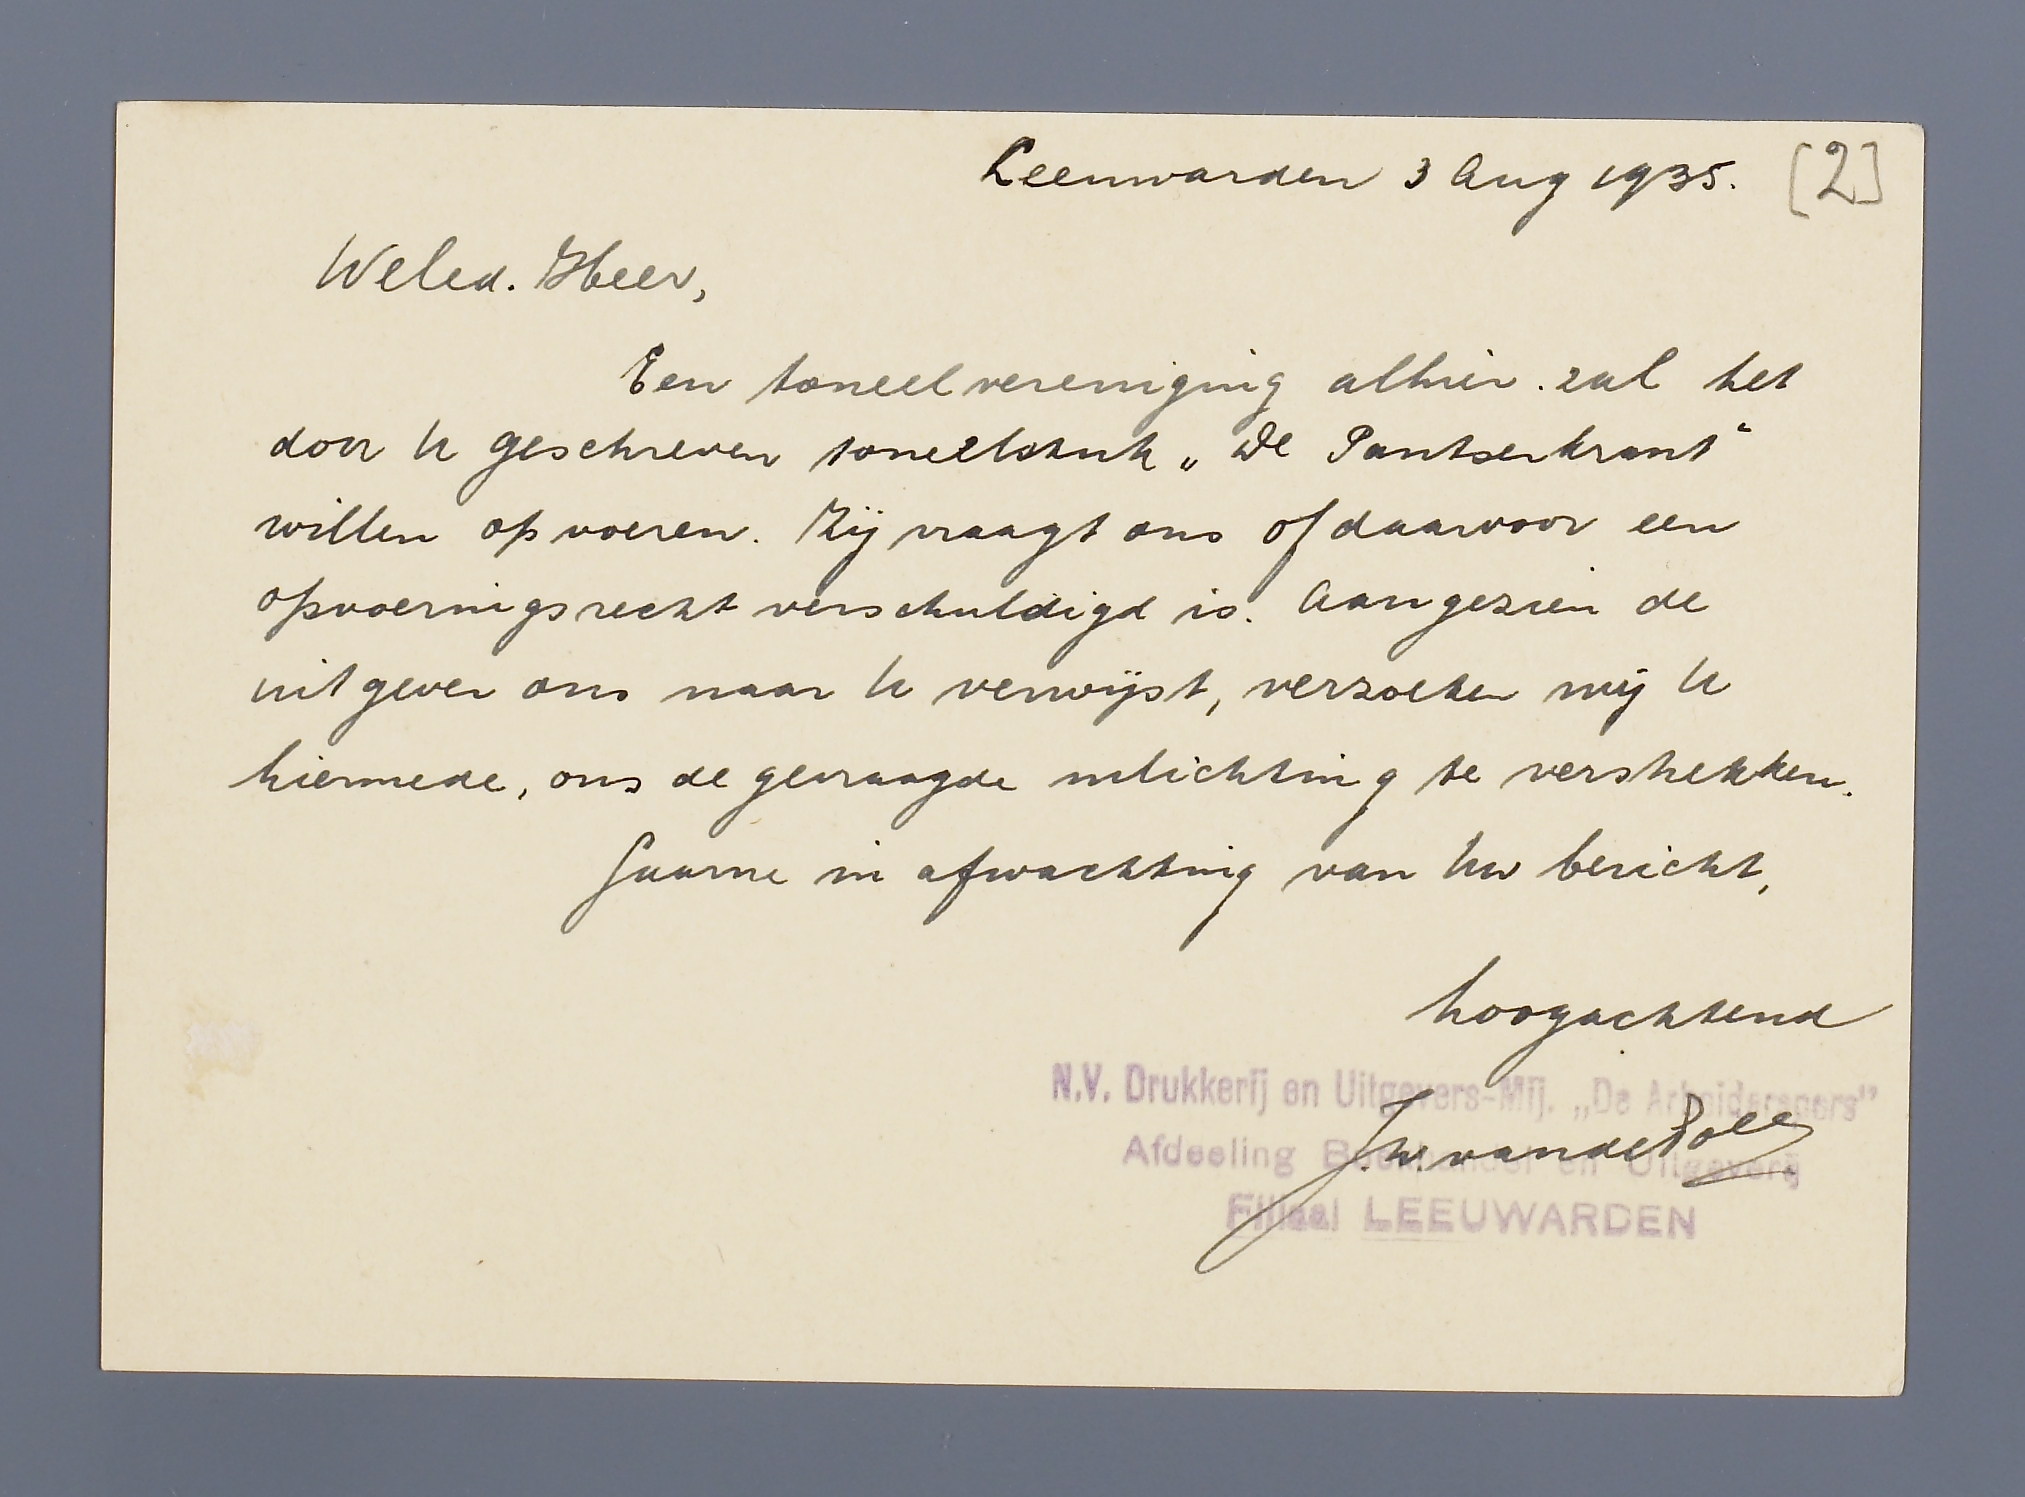 Leeuwarden 3 Aug 1935. [2]
Weled. Heer,
Een toneelvereniging alhier zal het
door U geschreven toneelstuk „De Pantserkrant"
willen opvoeren. Zij vraagt ons of daarvoor een
opvoeringsrecht verschuldigd is. Aangezien de
uitgever ons naar U verwijst, verzoeken wij U
hiermede, ons de gevraagde inlichting te verstrekken.
Gaarne in afwachting van Uw bericht,
hoogachtend
N.V. Drukkerij en Uitgevers-Mij. „De Arbeiderspers"
J.W. van de Poll
Afdeeling Boekhandel en Uitgeverij
Filiaal LEEUWARDEN